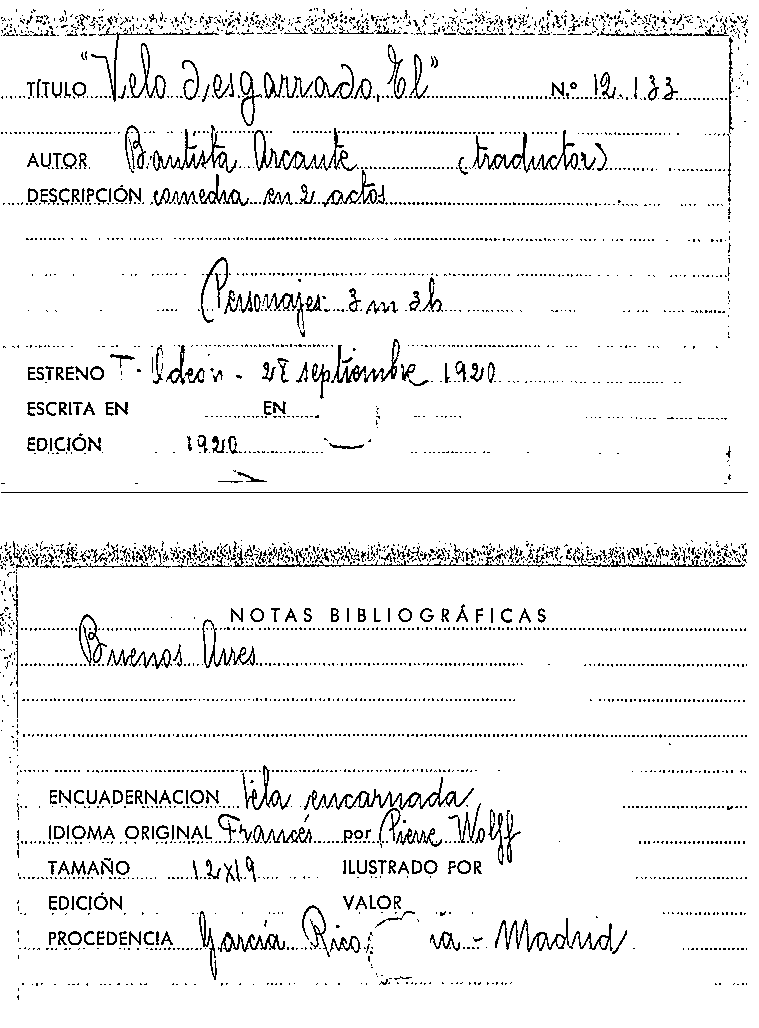 TÍTULO "Velo desgarrado, El" N.º 12.133
AUTOR Bautista Arcante (traductor)
DESCRIPCIÓN comedia en 2 actos
Personajes: 3 m 3h
ESTRENO T. Odeón - septiembre 1920
ESCRITA EN EN
EDICIÓN 1920
NOTAS BIBLIOGRÁFICAS
Buenos Aires
ENCUADERNACION Tela encarnada
IDIOMA ORIGINAL Francés por Pierre Wolff
TAMAÑO 12x19 ILUSTRADO POR
EDICIÓN VALOR
PROCEDENCIA García Rico - Madrid